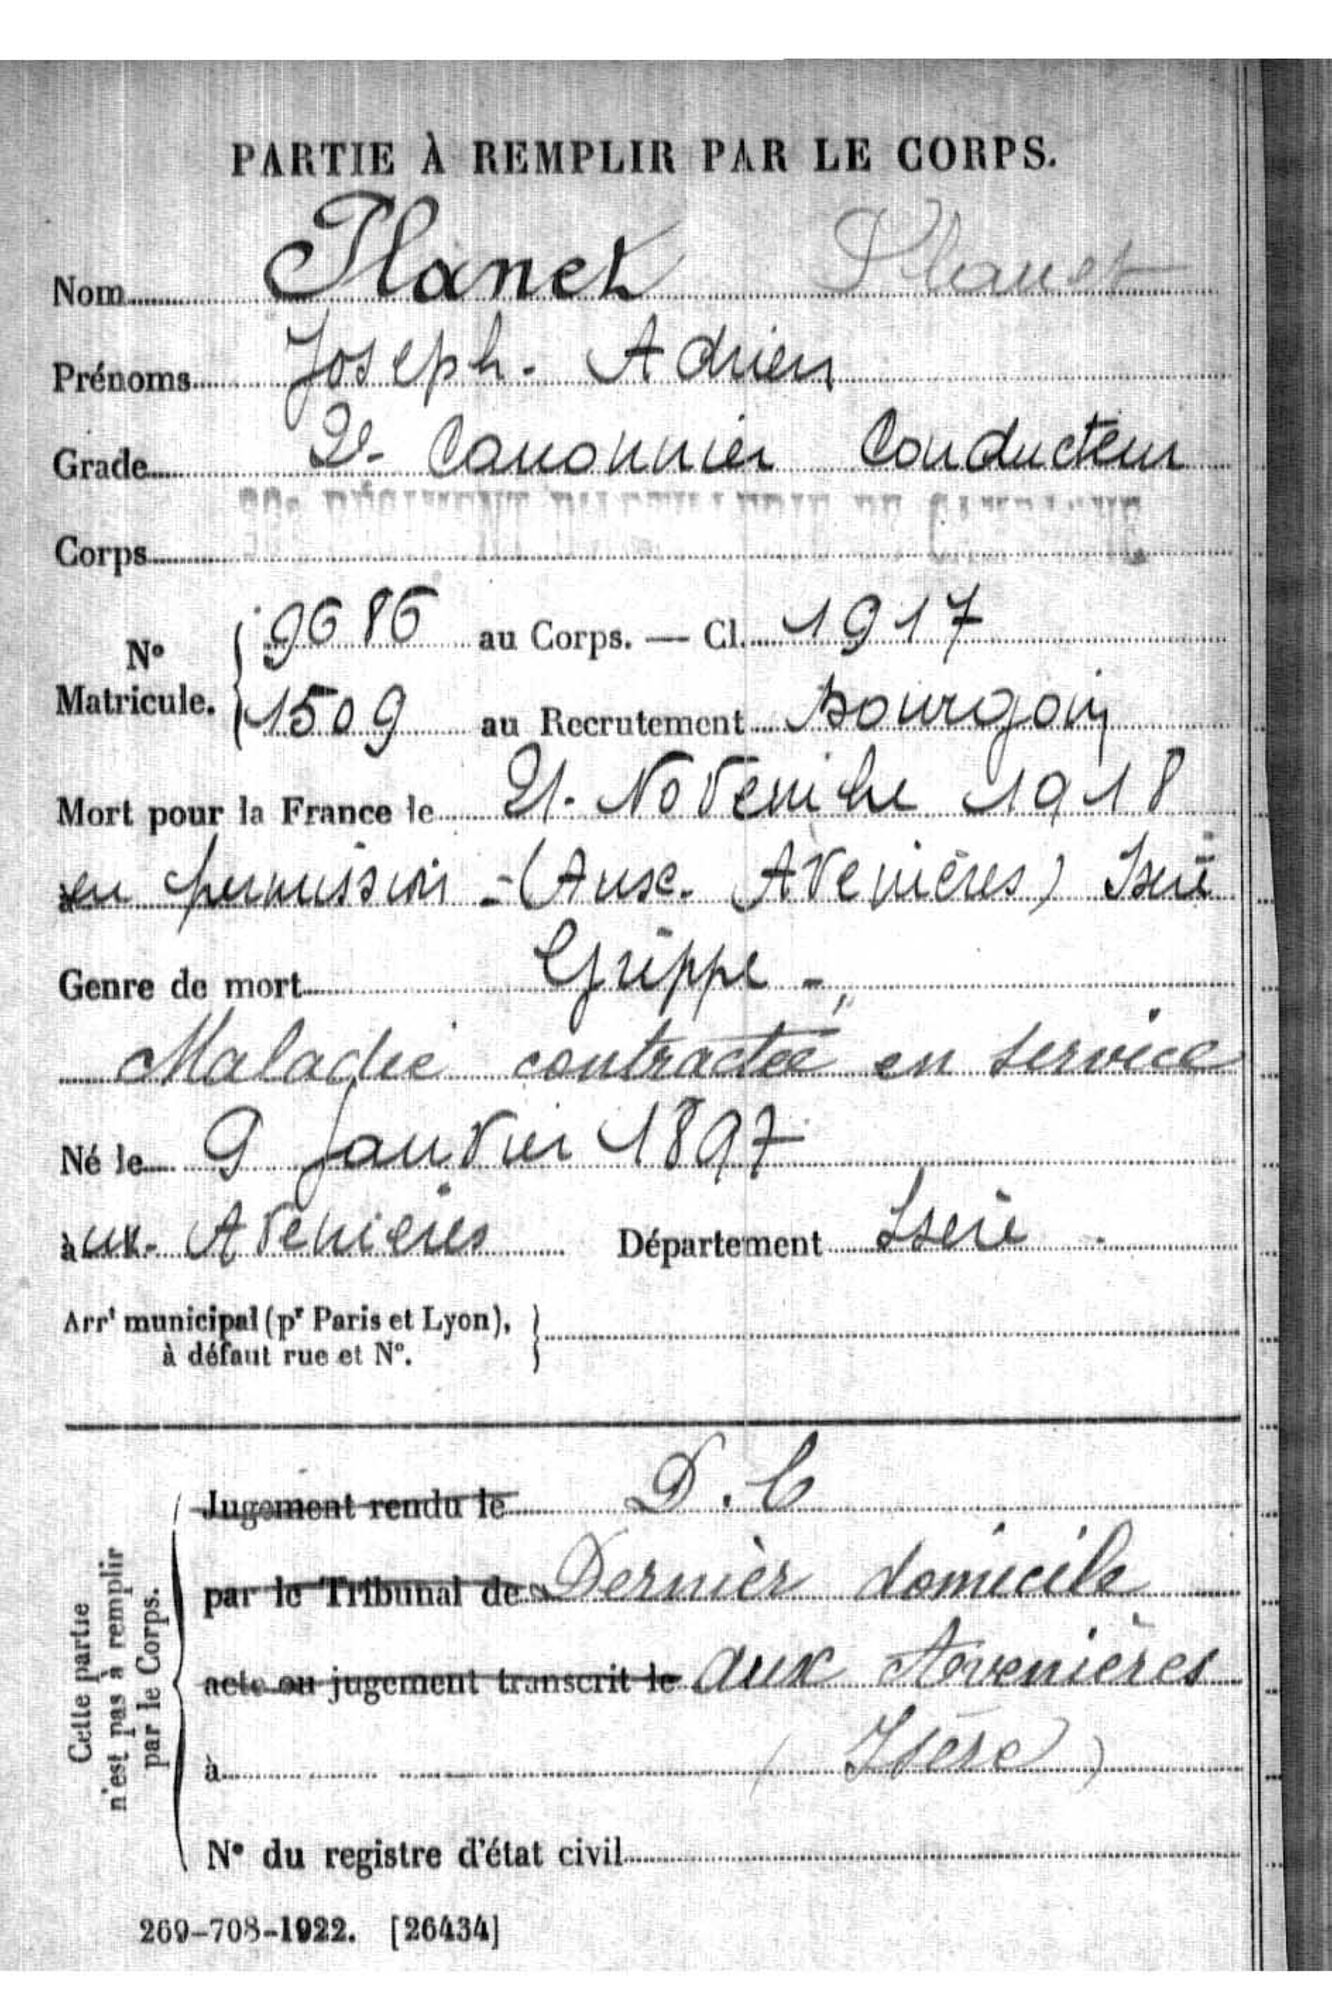 PARTIE À REMPLIR PAR LE CORPS.
Nom Planet Planet
Prénoms Joseph. Adrien
Grade 2e Canonnier Conducteur
RÉGIMENT D'ARTILLERIE DE CAMPAGNE
Corps
No Matricule. { 9686 au Corps. — Cl. 1917
1509 au Recrutement Bourgoin
Mort pour la France le 21. Novembre 1918
en permission - (Aux. Avenières) Isère
Genre de mort Grippe -
Maladie contractée en service
Né le 9 Janvier 1897
àux. Avenières Département Isère
Arrt municipal (pr Paris et Lyon), }
à défaut rue et No.
Jugement rendu le D. C
par le Tribunal de Dernier domicile
acte ou jugement transcrit le aux Avenières
à (Isère)
No du registre d'état civil
Cette partie
n'est pas à remplir
par le Corps.
269-708-1922. [26434]